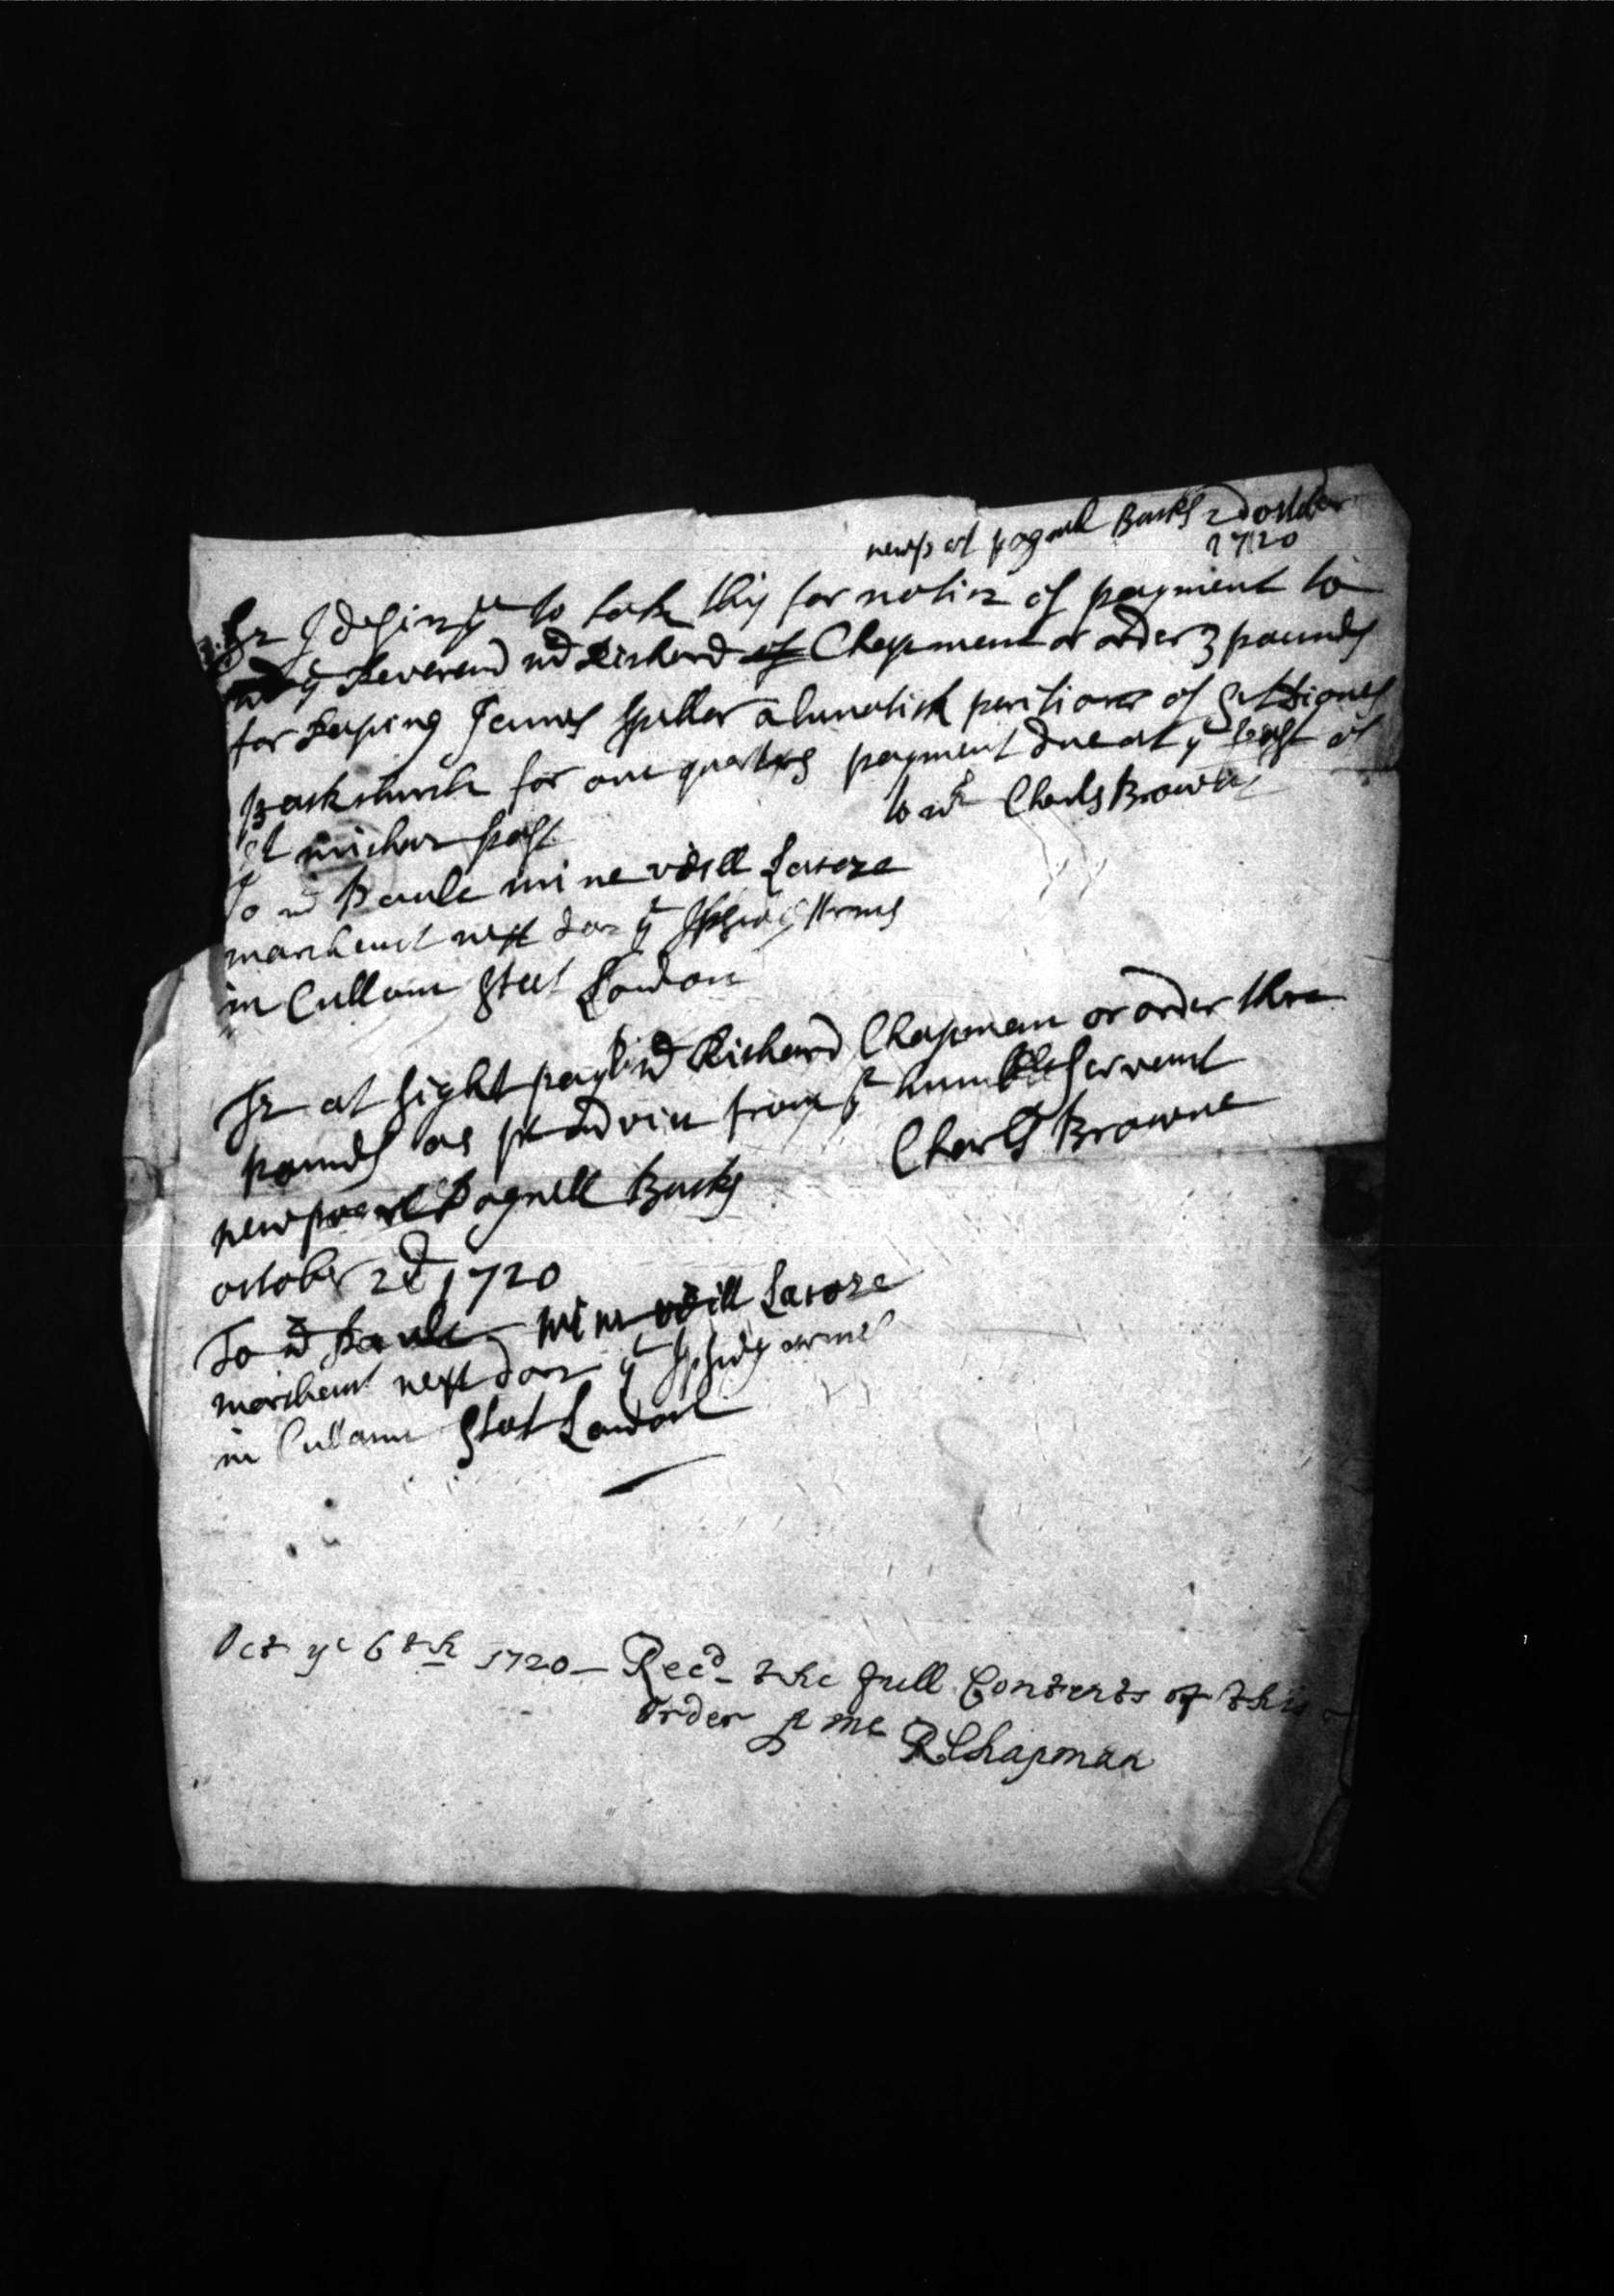 newp at pagnell Bucks 2d october
1720
Sr I desire ye to take this for notice of payment to
ye Reverend md Richard of Chapman or order 3 pounds
for keeping James Spiller a lunatick of St Diones
Backchurch for one quarters payment due at ye feast of
St micher past
to mr Charls Browne
To md Paule mine vill Lasore
marchant next dor ye Armes
in Cullam Street London
Sr at sight pay to md Richard Chapman or order thre
pounds as pr advice from yr humble Servant
Charls Browne
newport Pagnell Bucks
october 2d 1720
To md Paule mine vill Lasore
marchant next dore ye armes
in Cullam Street London
Oct ye 6th 1720 - Recd the full Contents of this
Order p me
R Chapman